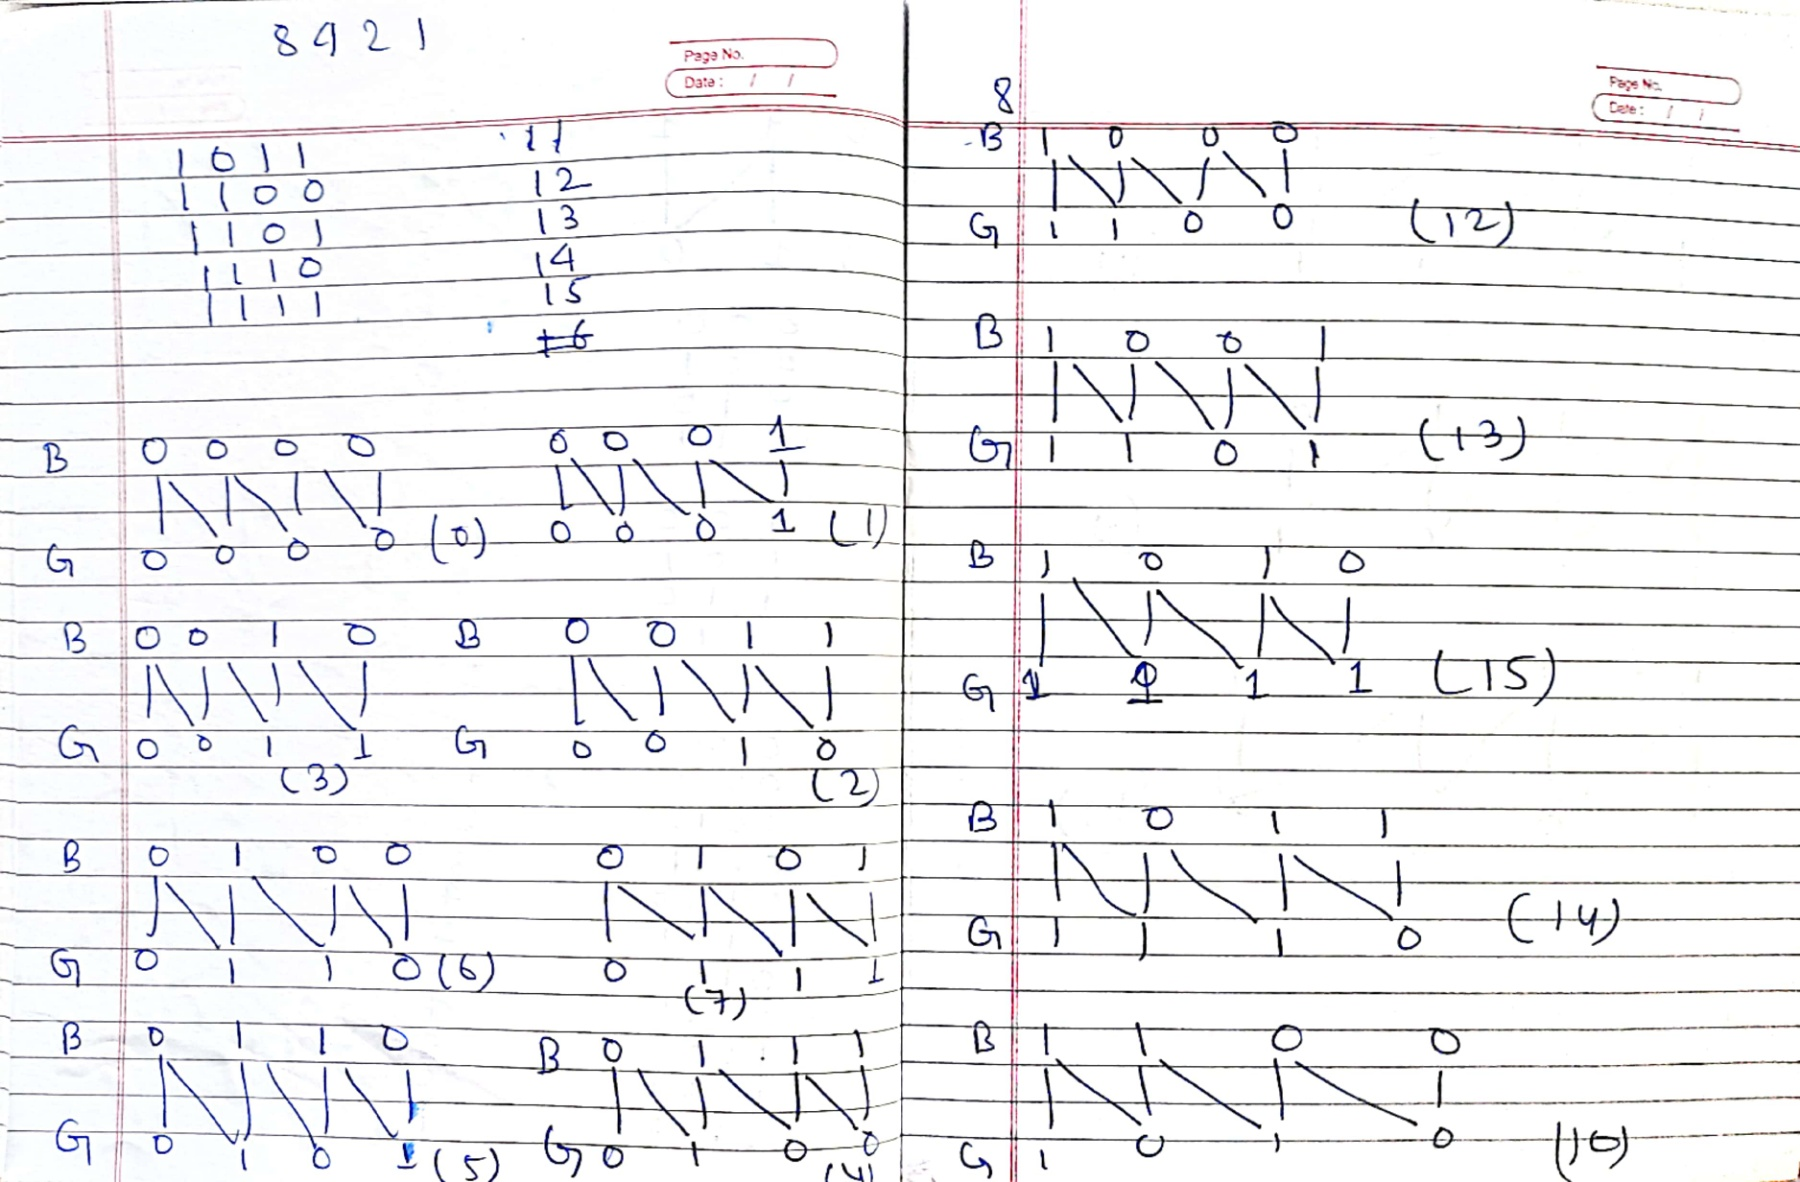 8421
Page No.
Date: / /
1011 11
1100 12
1101 13
1110 14
1111 15
16
B 0 0 0 0 0 0 0 1
G 0 0 0 0 (0) 0 0 0 1 (1)
B 0 0 1 0 B 0 0 1 1
G 0 0 1 1 G 0 0 1 0
(3) (2)
B 0 1 0 0 0 1 0 1
G 0 1 1 0 (6) 0 1 1 1
(7)
B 0 1 1 0 B 0 1 1 1
G 0 1 0 1 (5) G 0 1 0 0
(4)
Page No.
Date: / /
8
B 1 0 0 0
G 1 1 0 0 (12)
B 1 0 0 1
G 1 1 0 1 (13)
B 1 0 1 0
G 1 1 1 1 (15)
B 1 0 1 1
G 1 1 1 0 (14)
B 1 1 0 0
G 1 0 1 0 (10)